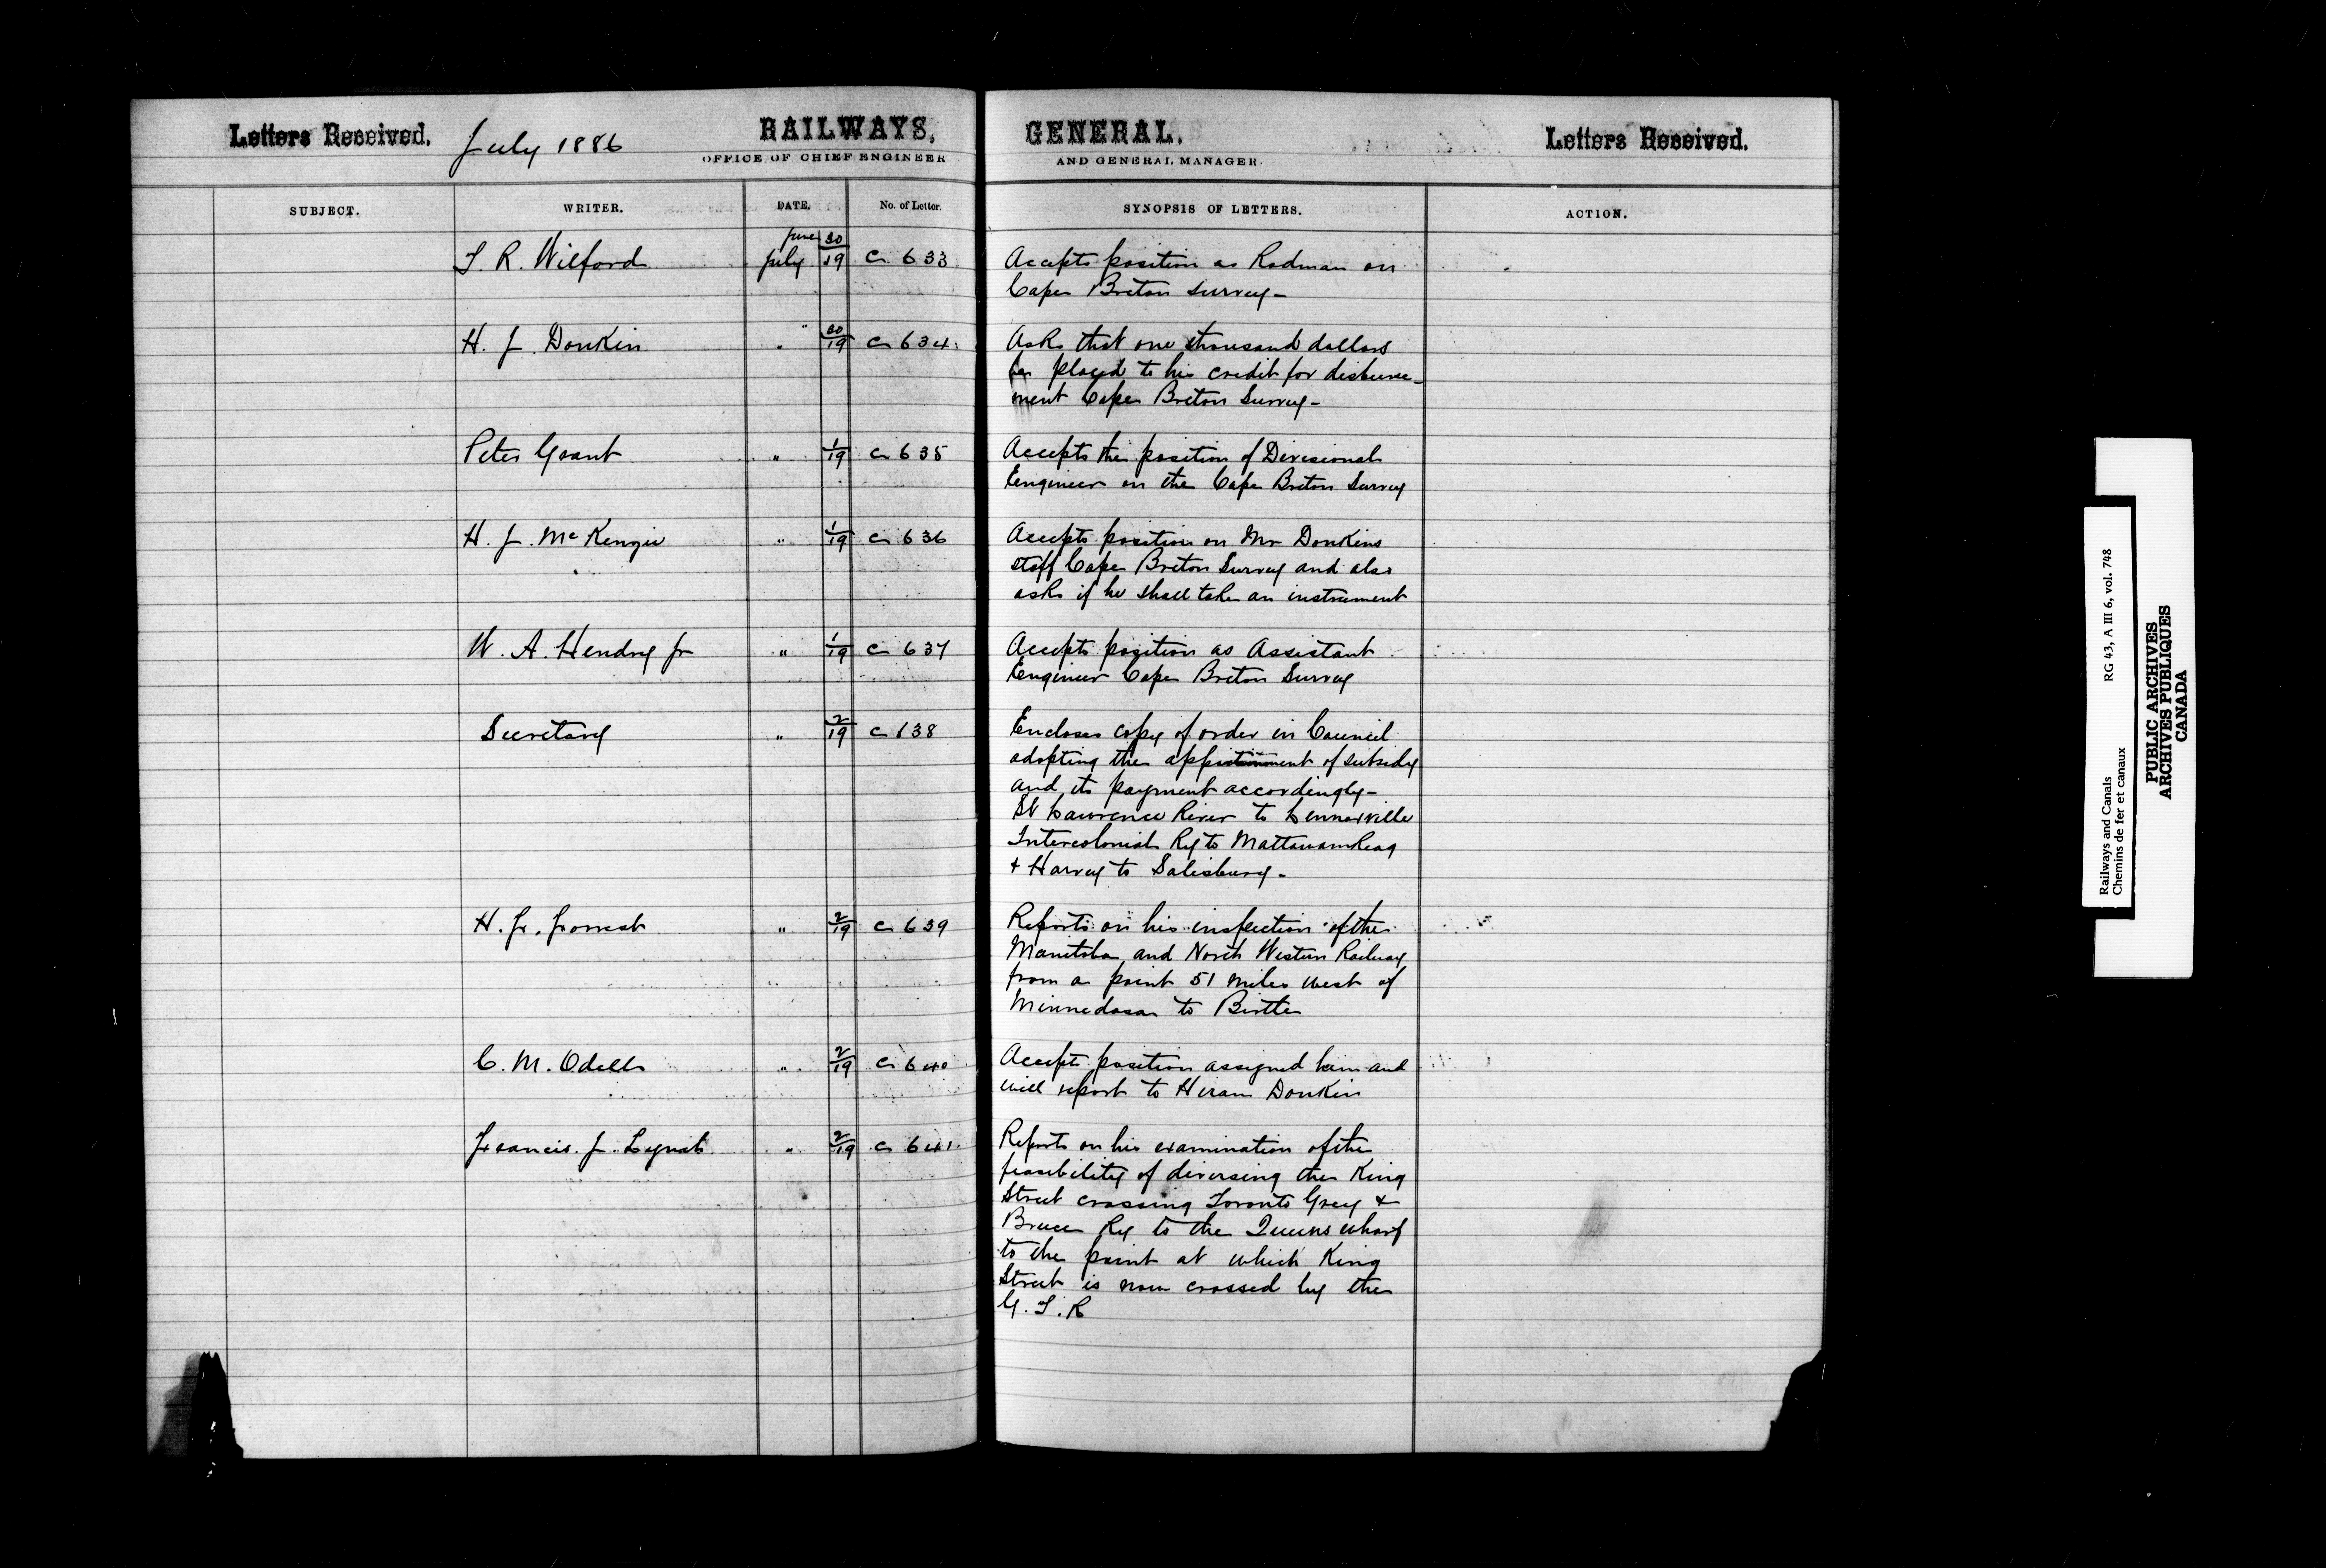 Letters Received. July 1886 RAILWAYS, GENERAL. Letters Received.
OFFICE OF CHIEF ENGINEER AND GENERAL MANAGER.
SUBJECT. WRITER. DATE. No. of Letter. SYNOPSIS OF LETTERS. ACTION.
June 30
T. R. Wilford July 19 C 633 Accepts position as Rodman on
Cape Breton survey-
H. J. Donkin " 30/19 C 634 Asks that one thousand dollars
be placed to his credit for disburse-
ment Cape Breton Survey-
Peter Grant " 1/19 C 635 Accepts the position of Divisional
Engineer on the Cape Breton Survey
H. J. McKenzie " 1/19 C 636 Accepts position on Mr Donkins
staff Cape Breton Survey and also
asks if he shall take an instrument
W. A. Hendry Jr " 1/19 C 637 Accepts position as Assistant
Engineer Cape Breton Survey
Secretary " 2/19 C 638 Encloses copy of order in Council
adopting the of subsidy
and its payment accordingly-
St Lawrence River to Lennoxville
Intercolonial Ry to Mattawamkeag
& Harvey to Salisbury-
H. F. Forrest " 2/19 C 639 Reports on his inspection of the
Manitoba and North Western Railway
from a point 51 miles west of
Minnedosa to Birtle
C. M. Odell " 2/19 C 640 Accepts position assigned him and
will report to Hiram Donkin
Francis J. Lynch " 2/19 C 641 Reports on his examination of the
feasibility of diversing the King
Street crossing Toronto Grey &
Bruce Ry to the Queens wharf
to the point at which King
Street is now crossed by the
G. T. R
Railways and Canals RG 43, A III 6, vol. 748
Chemins de fer et canaux
PUBLIC ARCHIVES
ARCHIVES PUBLIQUES
CANADA